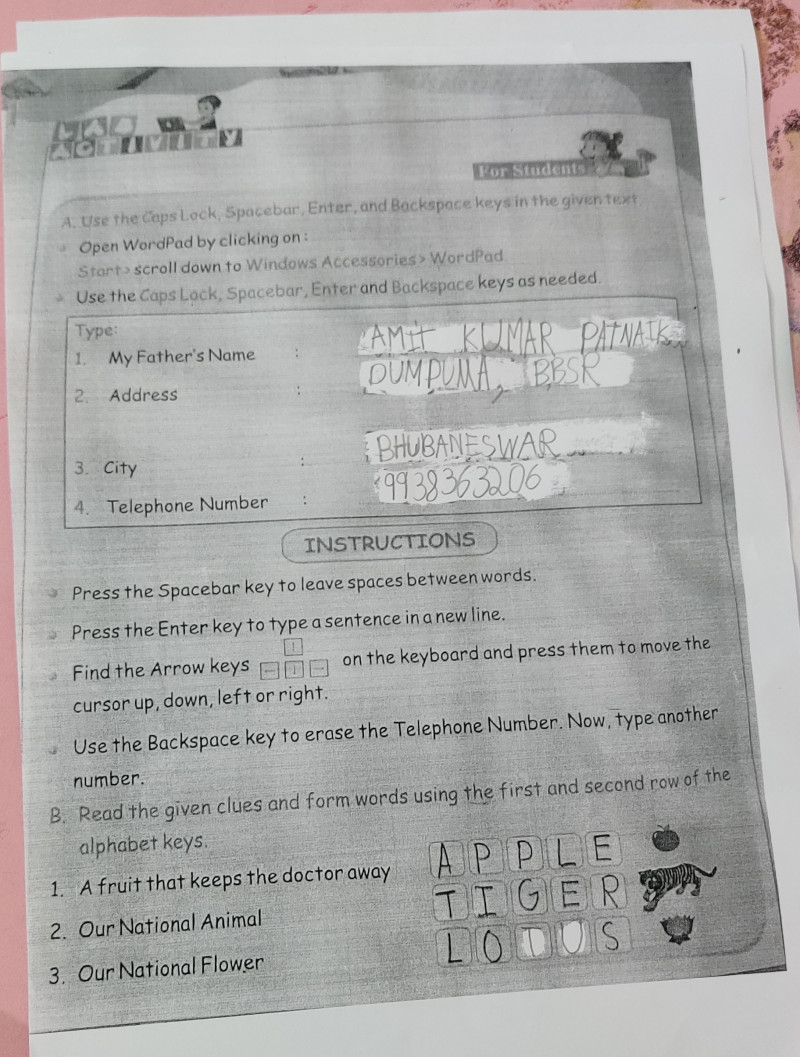 LAB
ACTIVITY
For Students
A. Use the Caps Lock, Spacebar, Enter, and Backspace keys in the given text.
Open WordPad by clicking on :
Start > scroll down to Windows Accessories > WordPad
Use the Caps Lock, Spacebar, Enter and Backspace keys as needed.
Type:
1. My Father's Name : AMIt KUMAR PATNAIK
2. Address : DUMDUMA, BBSR
3. City : BHUBANESWAR
4. Telephone Number : 9938363206
INSTRUCTIONS
Press the Spacebar key to leave spaces between words.
Press the Enter key to type a sentence in a new line.
Find the Arrow keys on the keyboard and press them to move the
cursor up, down, left or right.
Use the Backspace key to erase the Telephone Number. Now, type another
number.
B. Read the given clues and form words using the first and second row of the
alphabet keys.
1. A fruit that keeps the doctor away APPLE
2. Our National Animal TIGER
3. Our National Flower LOTUS